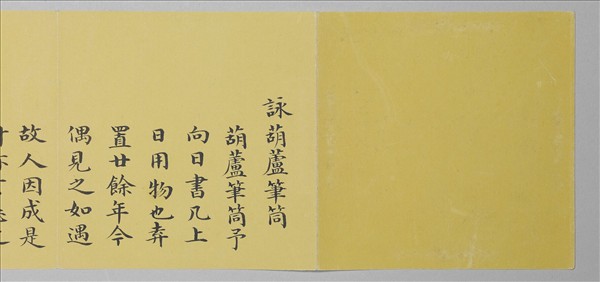 詠葫蘆筆筒
葫蘆筆筒予
向日書几上
日用物也弆
置廿餘年今
偶見之如遇
故人因成是